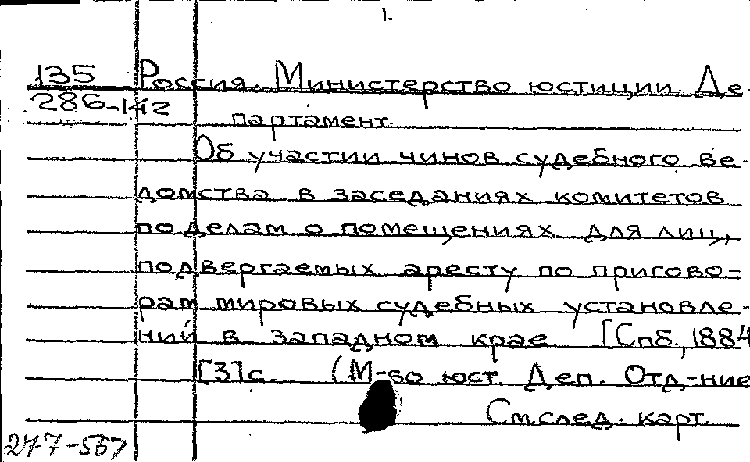 1.
135 Россия. Министерство юстиции. Де-
286-142 партамент.
Об участии чинов судебного ве-
домства в заседаниях комитетов
по делам о помещениях для лиц,
подвергаемых аресту по пригово-
рам мировых судебных установле-
ний в западном крае. [Спб., 1884
[3]с. (М-во юст. Деп. Отд-ние
См.след. карт.
277-567